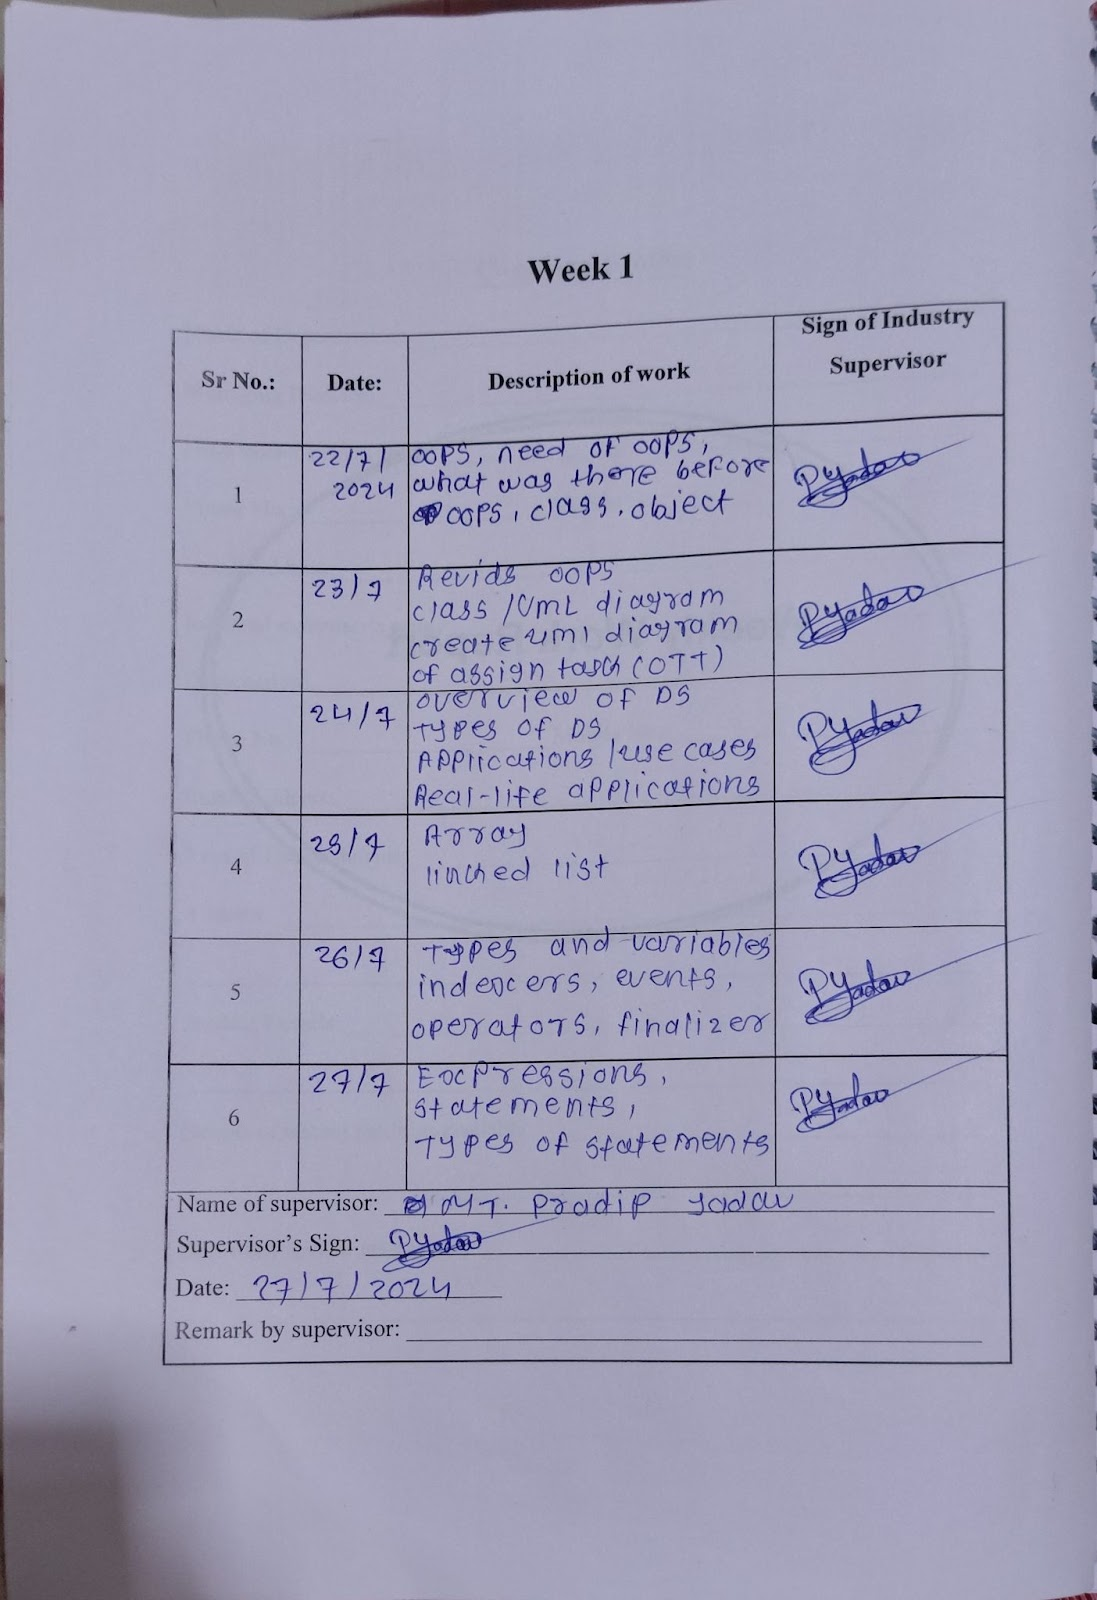 Week 1
Sr No.:
Date:
Description of work
Sign of Industry
Supervisor
1
22/7/
2024
OOPS, need of OOPS,
what was there before
OOPS, class, object
PYadav
2
23/7
Revids OOPS
class /UML diagram
create uml diagram
of assign task (OTT)
PYadav
3
24/7
overview of DS
Types of DS
Applications /use cases
Real-life applications
PYadav
4
25/7
Array
linked list
PYadav
5
26/7
Types and variables
indexers, events,
operators, finalizer
PYadav
6
27/7
Expressions,
statements,
Types of statements
PYadav
Name of supervisor: Mr. Pradip Yadav
Supervisor's Sign: PYadav
Date: 27/7/2024
Remark by supervisor: